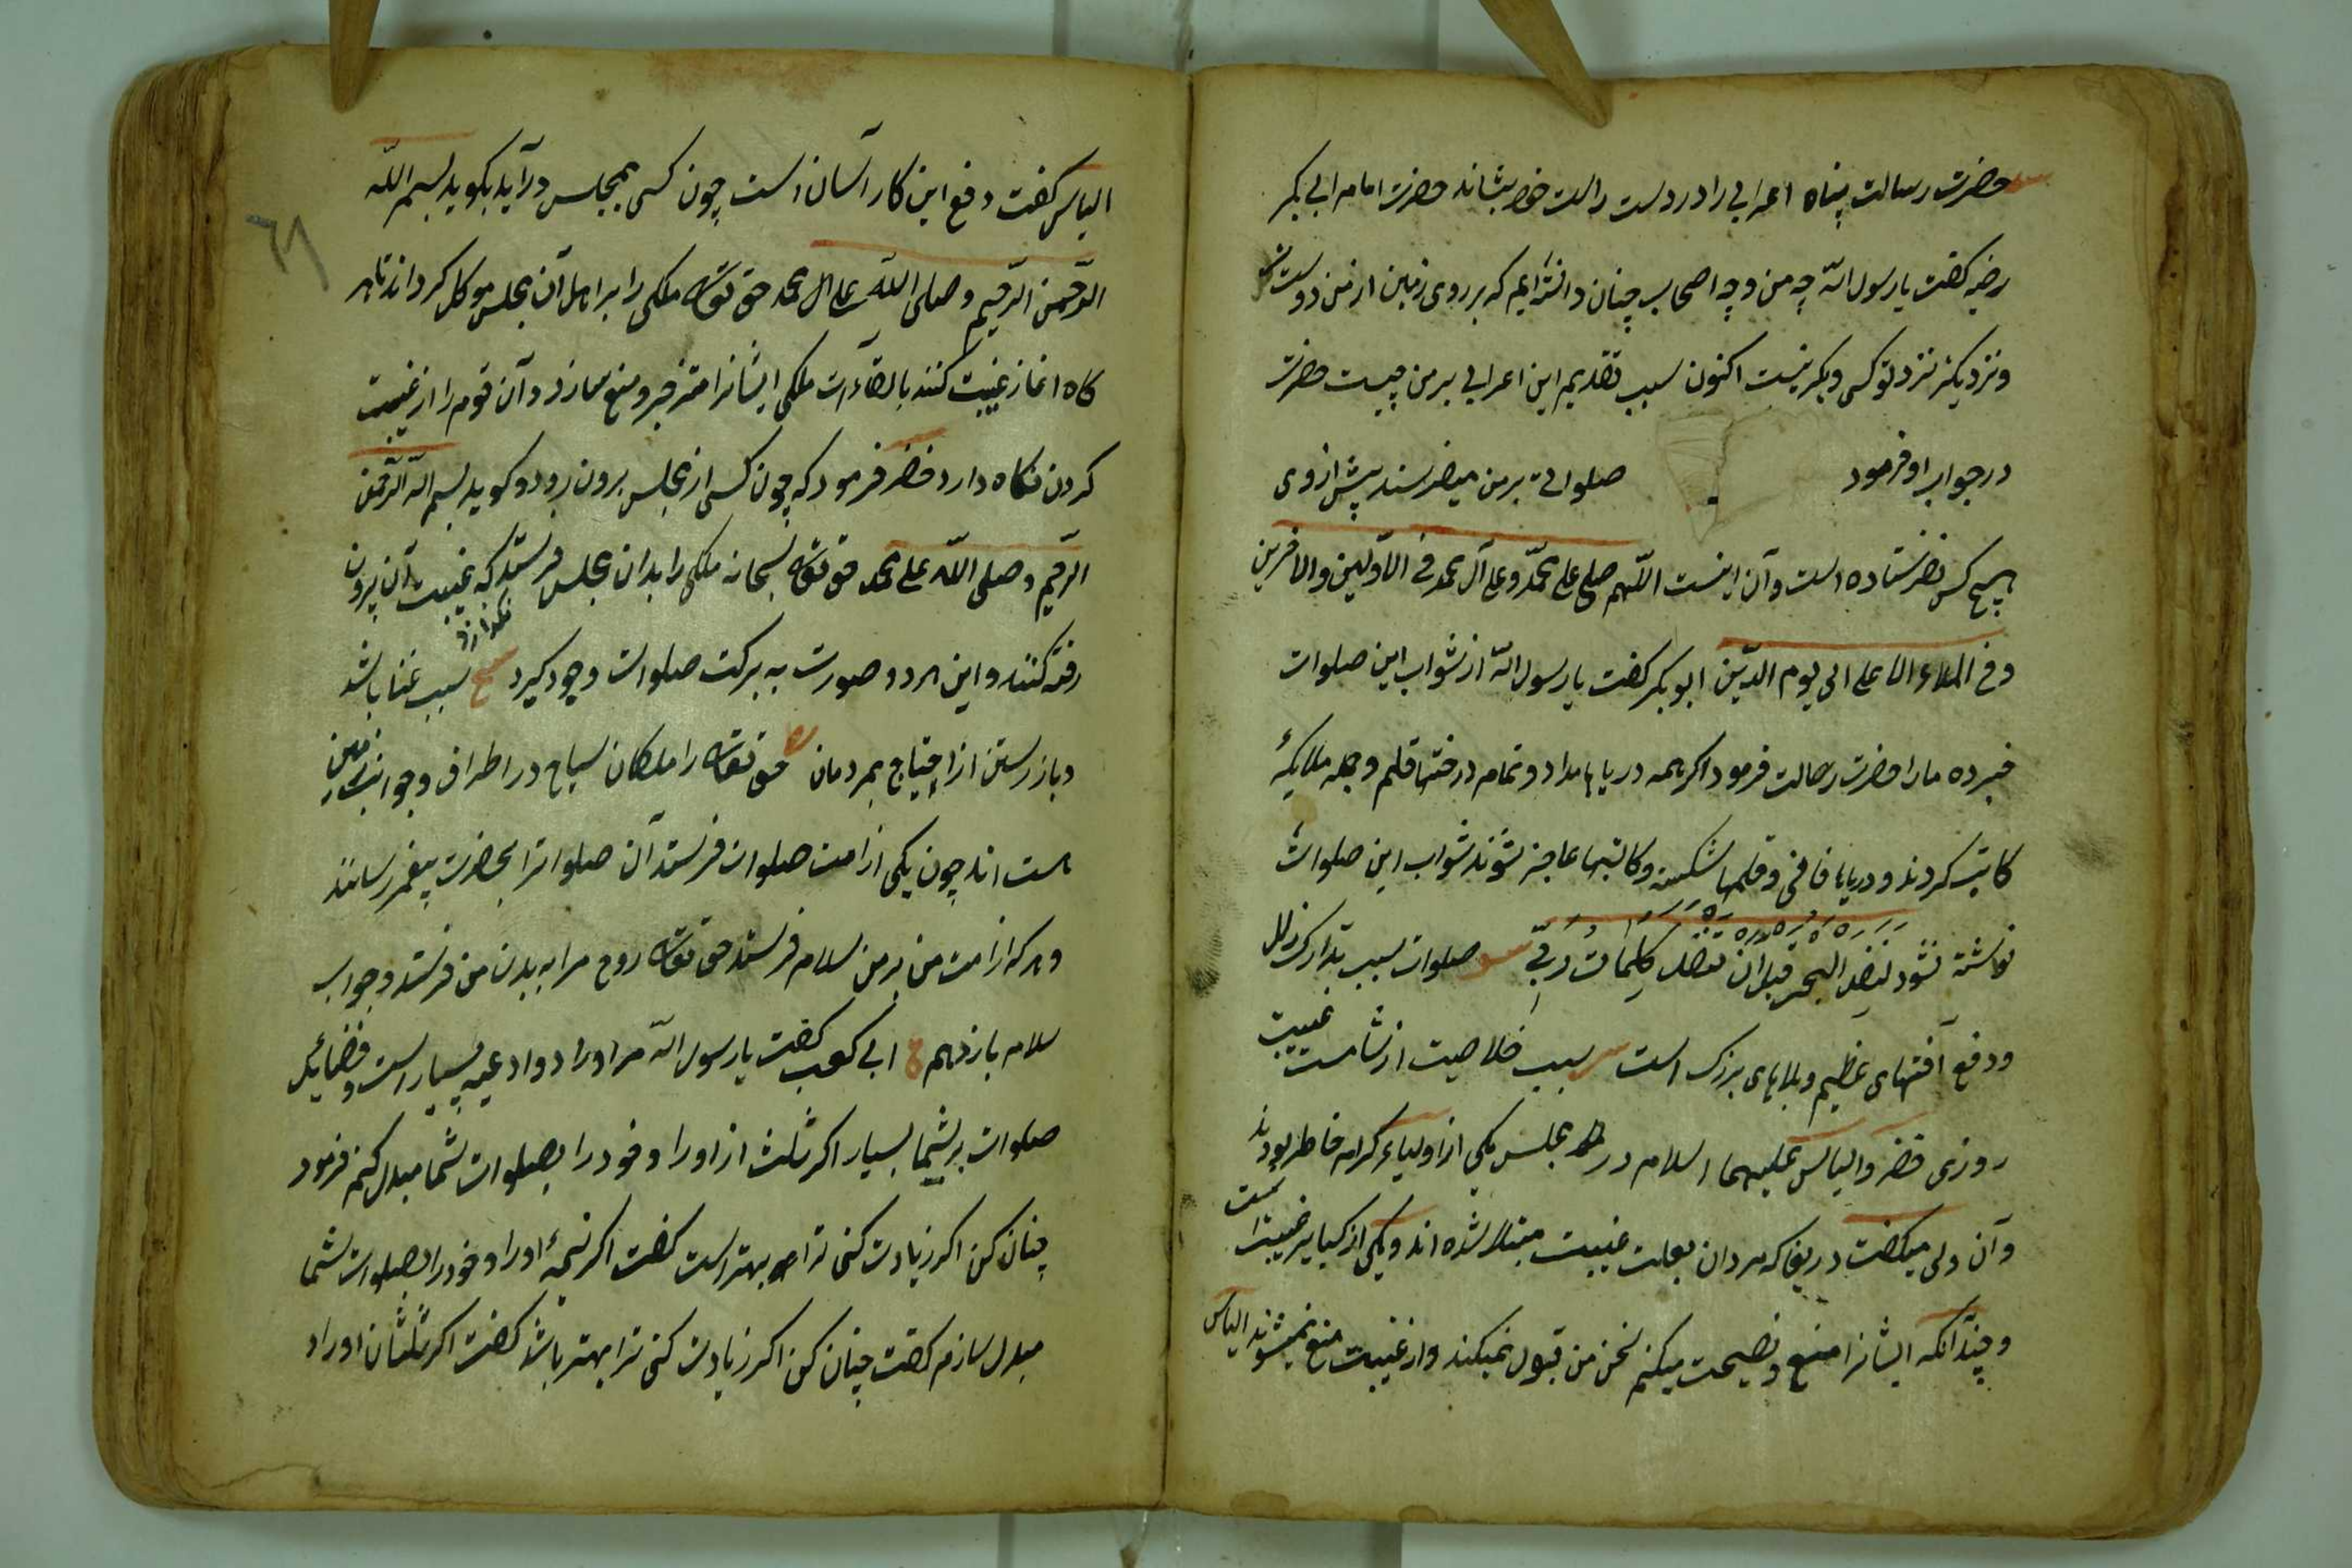 حضرت رسالت پناه اعرابی را در دست راست خود بنشاند حضرت امام ابی بکر
رضہ کفت یا رسول اللّه چه من و چه اصحاب چنان دانسته‌ایم که بر روی زمین از من دوست
و نزدیکتر نزد تو کسی دیکر نیست اکنون سبب تقدیم این اعرابی بر من چیست حضرت
در جواب او فرمود صلواتی بر من میفرستد پیش از وی
هیچ کس نفرستاده است و آن اینست اللّهم صل علی محمّد و علی آل محمد فی الاوّلین والاخرین
و فی الملاء الاعلی الی یوم الدّین ابو بکر کفت یا رسول اللّه از ثواب این صلوات
خبر ده مارا حضرت رسالت فرمود اکر همه دریاها مداد و تمام درختها قلم و جمله ملایکهٔ
کاتب کردند و دریاها فانی و قلمها شکسته و کاتبها عاجز شوند ثواب این صلوات
نوشته نشود لنفد البحر قبل ان تنفد کلمات ربّی صلوات سبب تدارک زلل
و دفع آفتهای عظیم و بلاهای بزرک است سبب خلاصیت از شامت غیبت
روزی خضر و الیاس علیهما السلام در مجلس یکی از اولیاء کرام حاضر بودند
و آن ولی میکفت دریغا که مردان بعلت غیبت مبتلا شده‌اند و یکی از کبایر غیبت است
و چندانکه ایشانرا منع و نصیحت میکنم سخن من قبول نمیکنند و از غیبت منع نمیشوند الیاس
٦٩
الیاس کفت دفع این کار آسان است چون کسی بمجلس درآید بکوید بسم اللّه
الرّحمن الرّحیم و صلی اللّه علی محمد حق تعالی ملکی را بر اهل آن مجلس موکل کرداند تا هر
کاه اغاز غیبت کنند بالقآءات ملکی ایشانرا منزجر و منع سازد و آن قوم را از غیبت
کردن نکاه دارد خضر فرمود که چون کسی از مجلس برون رود و کوید بسم اللّه الرّحمن
الرّحیم و صلی اللّه علی محمد حق تعالی سبحانه ملکی را بدان مجلس فرستد که غیبت آن برون
رفته کنند نکذارد و این هر دو صورت به برکت صلوات وجود کیرد سبب غنا باشد
و باز رستن از احتیاج بمردمان حق تعالی را ملکان سیاح در اطراف و جوانب زمین
هست اند چون یکی از امت صلوات فرستد آن صلواترا بحضرت پیغمبر رسانند
و هر که از امت من بر من سلام فرستد حق تعالی روح مرا به بدن من فرستد و جواب
سلام باز دهم ابی کعب کفت یا رسول اللّه مرا اوراد و ادعیه بسیار است و فضائل
صلوات بر شما بسیار اکر ثلث از اوراد خود را بصلوات شما مبدل کنم فرمود
چنان کن اکر زیادت کنی ترا بهتر است کفت اکر نیمهٔ اوراد خود را بصلوات شما
مبدل سازم کفت چنان کن اکر زیادت کنی ترا بهتر باشد کفت اکر ثلثان اوراد